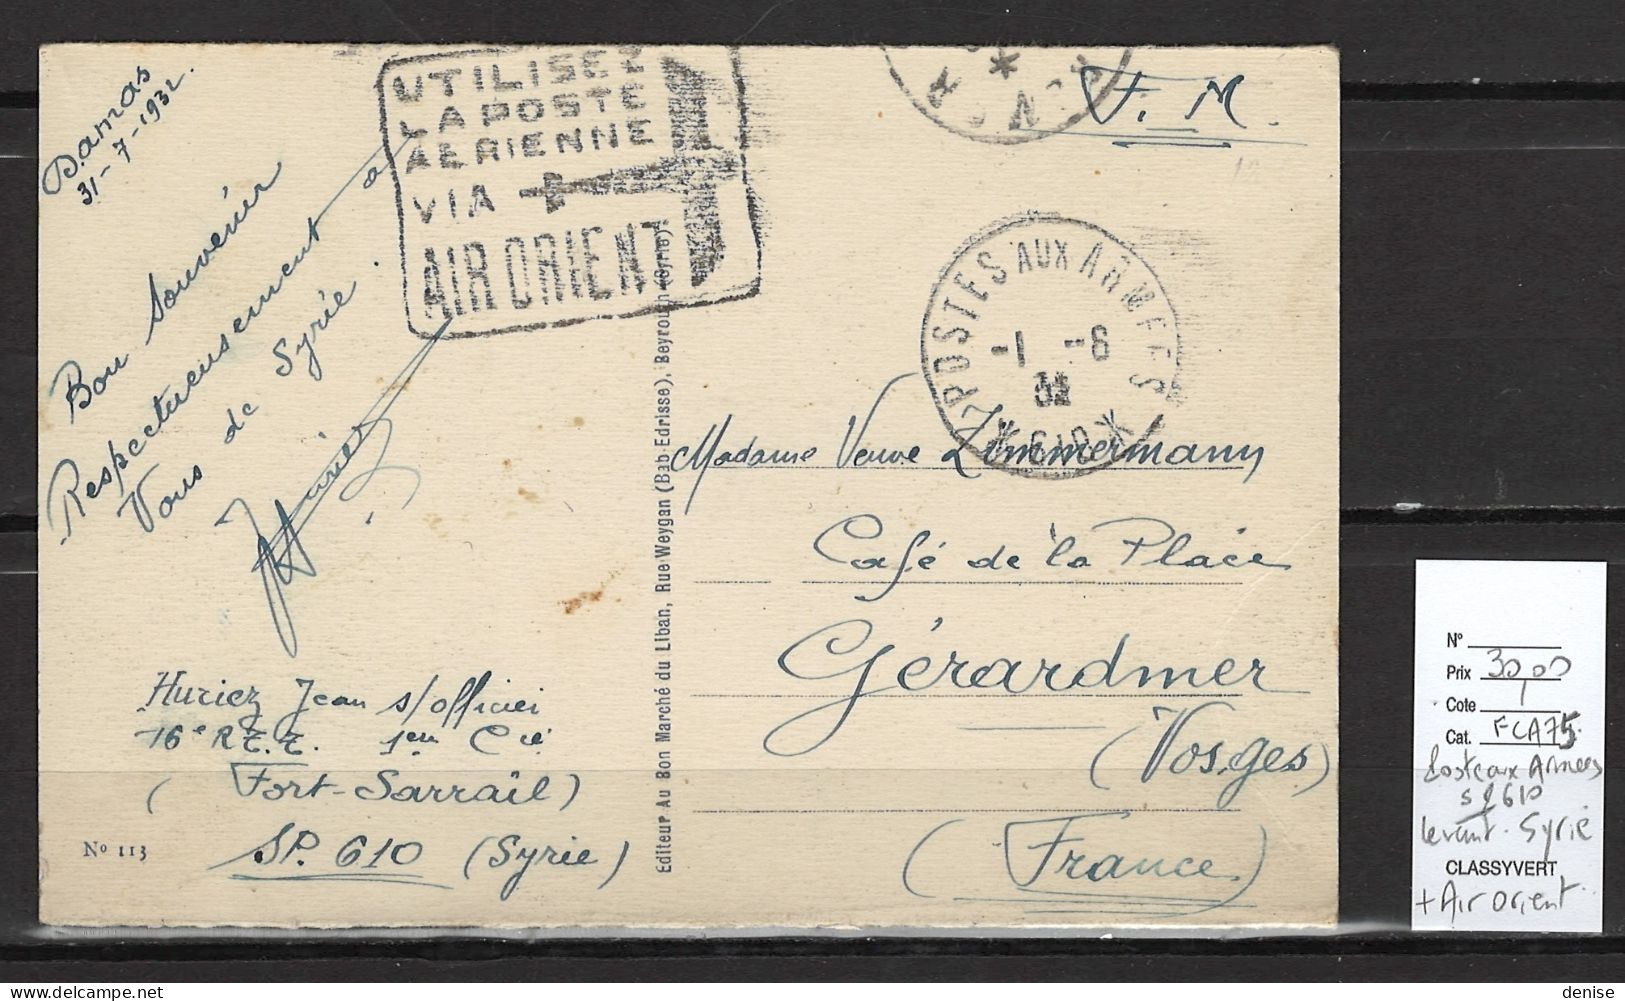 Damas
31-7-1932.
UTILISER
LA POSTE
AERIENNE
VIA
AIR ORIENT
F. M.
POSTES AUX ARMEES
-1 -6
32
* 610 *
Bon Souvenir
Respectueusement à
Vous de Syrie.
Huriez Jean s/officier
16e R.T.T. 1ere Cie
(Fort-Sarrail)
SP. 610 (Syrie)
No 113
Editeur Au Bon Marché du Liban, Rue Weygan (Bab-Edrisse), Beyrouth (Syrie)
Madame Veuve Zimmermann
Café de la Place
Gérardmer
(Vosges)
(France)
N°
Prix 30,00
Cote
Cat. FCA75
Poste aux Armees
SP 610
Levant. Syrie
CLASSYVERT
+ Air Orient
delcampe.net
denise